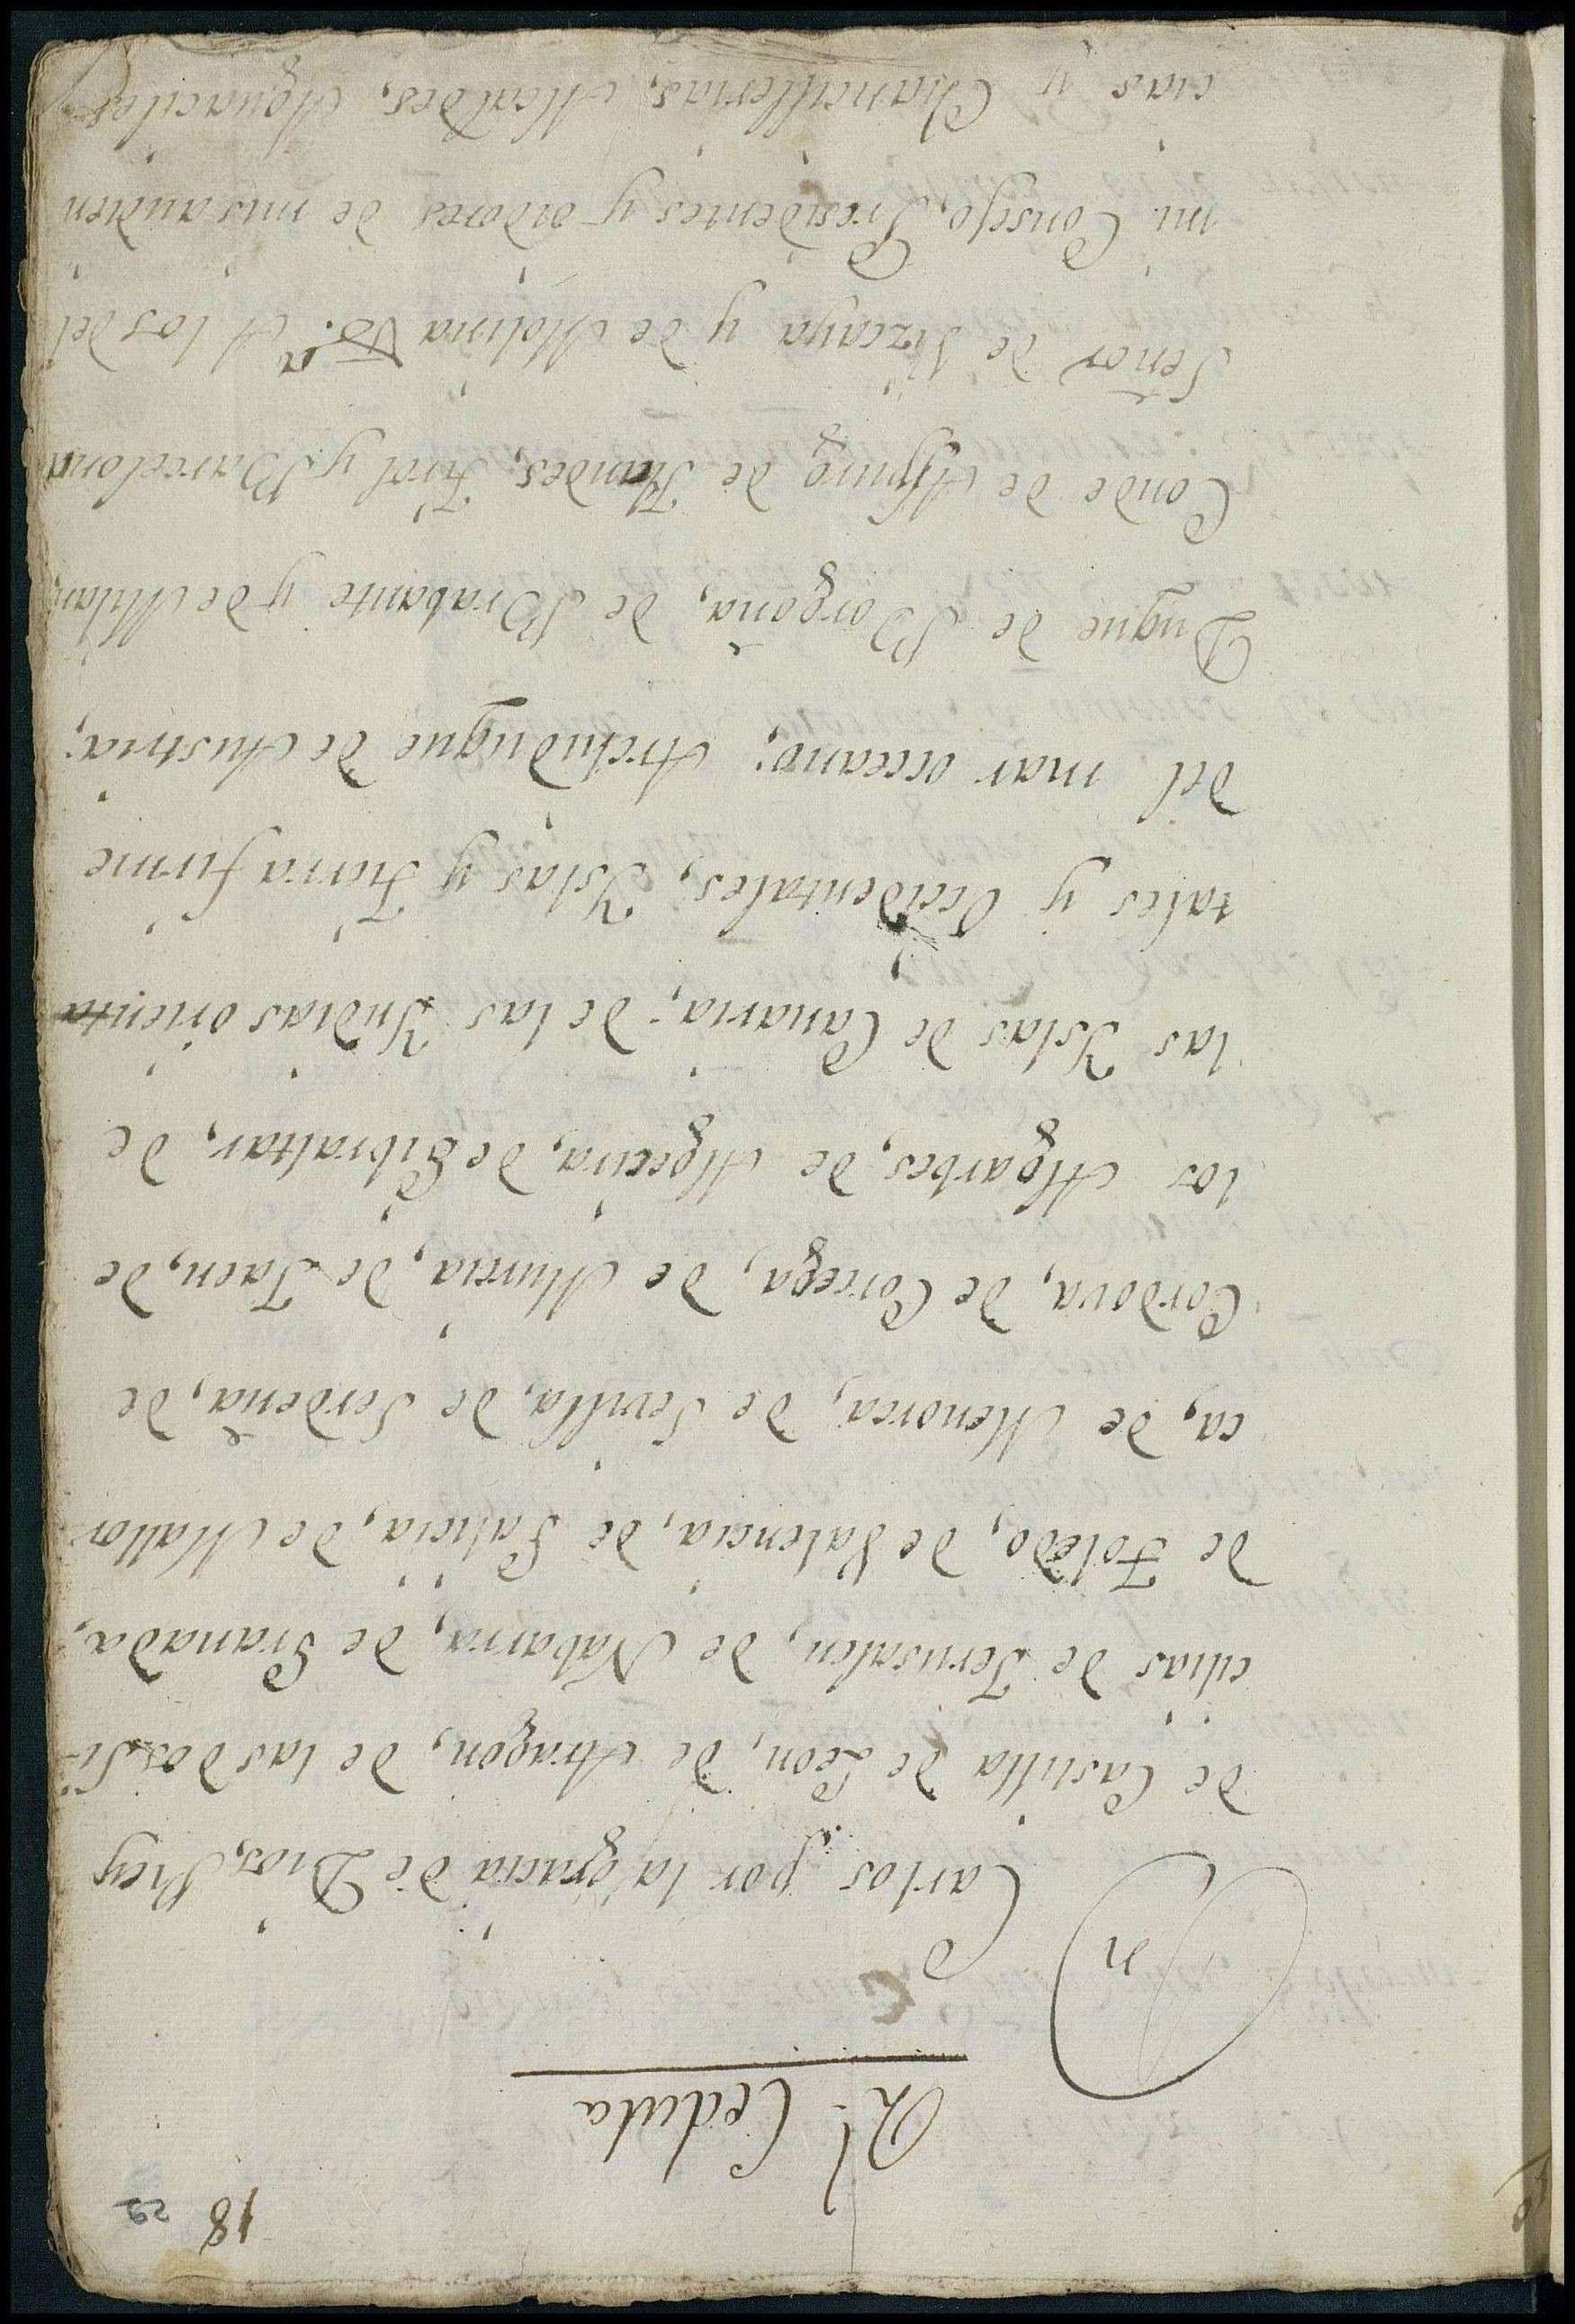 18 22
Rl. Cedula
Dn
Carlos, por la gracia de Dios, Rey
de Castilla de Leon, de Aragon, de las dos Si-
cilias de Jerusalen, de Nabarra, de Granada,
de Toledo, de Valencia, de Galicia, de Mallor
ca, de Menorca, de Sevilla, de Serdeña, de
Cordova, de Corcega, de Murcia, de Jaen, de
los Algarbes, de Algecira, de Gibraltar, de
las Yslas de Canaria, de las Yndias orienta
tales y Occidentales, Yslas y Tierra firme
del mar occeano; Archiduque de Austria;
Duque de Borgoña, de Brabante y de Milan;
Conde de Aspurg de Flandes, Tirol y Barcelona
Señor de Vizcaya y de Molina &a. A los del
mi Consejo, Presidentes y oidores de mis audien
cias y Chancillerias, Alcaldes, Alguaciles